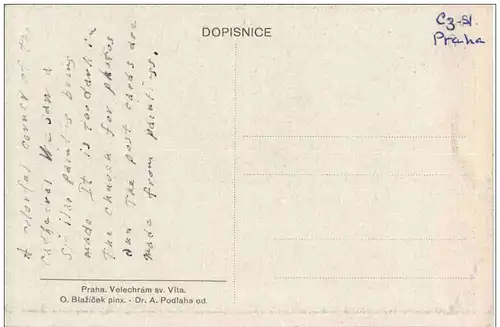 DOPISNICE
C3-St.
Praha
A colorful corner of the
Cathedral We saw a
Similar painting being
made It is too dark in
The church for photos
and The post cards are
made from paintings.
Praha. Velechrám sv. Víta.
O. Blažíček pinx. - Dr. A. Podlaha ed.